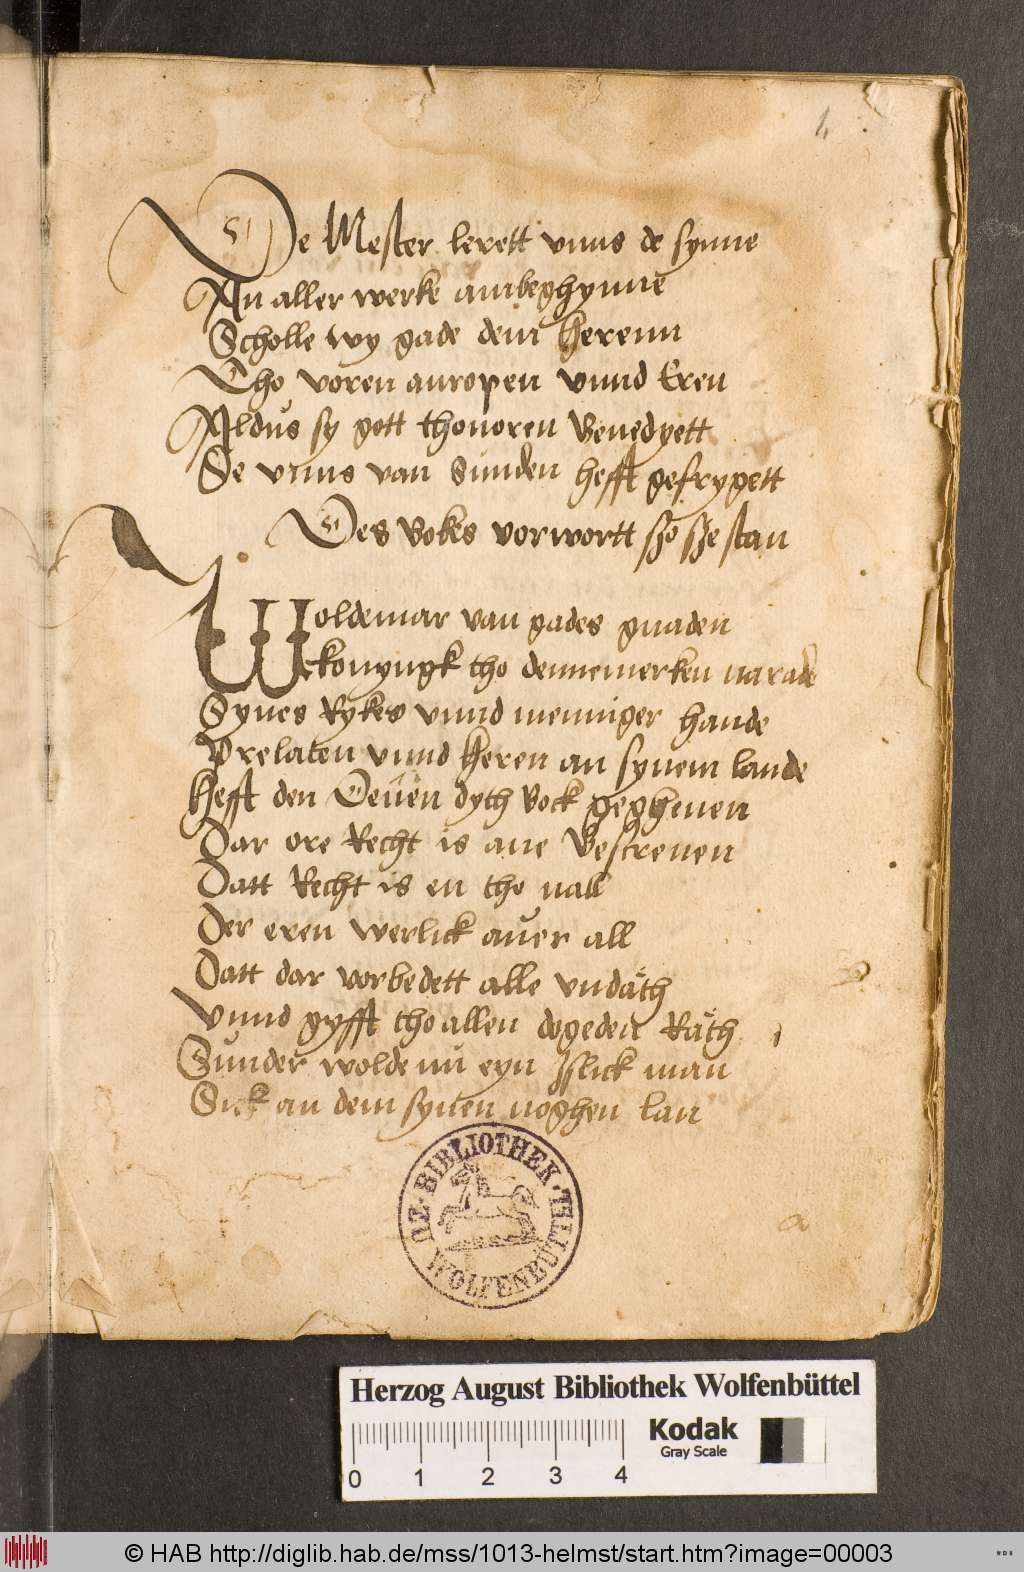 1
De Mester lerett vnns de synne
An aller werke anbeghynne
Scholle wy gade dem herenn
Tho voren anropen vnnd Eren
Aldus sy gott thouoren Benedyett
De vnns van sunden hefft gefrygett
Des Bokes vorwortt
Woldemar van gades gnaden
konyngk tho dennemerken na rade
Synes Rykes vnnd menniger hande
Prelaten vnnd heren an synem lande
Hefft den Denen dyth Bock gegheuen
Dar ore Recht is ane Bescreuen
Datt Recht is en tho uall
Der eren werlick auer all
Datt dar vorbedett alle vndath
Vnnd gyfft tho allen dogeden Rath
Sunder wolde nu eyn Islick man
Sick an dem synen noghen lan
BIBLIOTHEK ZU WOLFENBÜTTEL
a
Herzog August Bibliothek Wolfenbüttel
Kodak
Gray Scale
0 1 2 3 4
© HAB http://diglib.hab.de/mss/1013-helmst/start.htm?image=00003